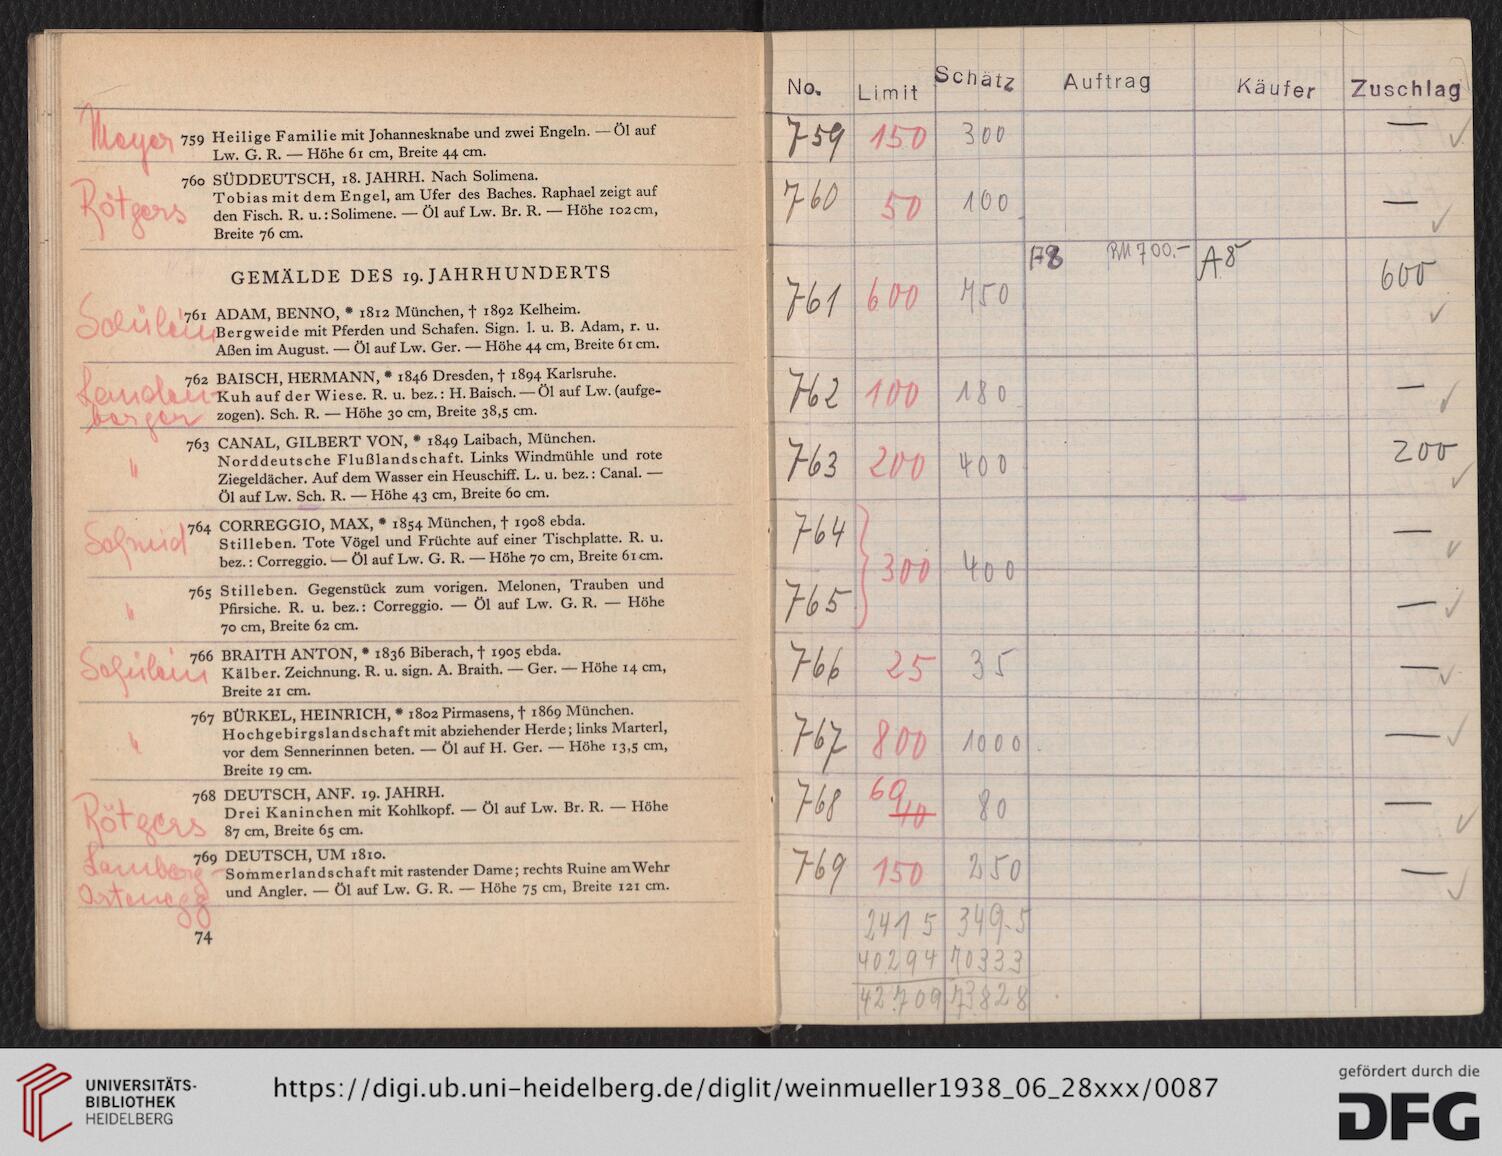 Meyer
759 Heilige Familie mit Johannesknabe und zwei Engeln. — Öl auf
Lw. G. R. — Höhe 61 cm, Breite 44 cm.
Rötgers
760 SÜDDEUTSCH, 18. JAHRH. Nach Solimena.
Tobias mit dem Engel, am Ufer des Baches. Raphael zeigt auf
den Fisch. R. u.: Solimene. — Öl auf Lw. Br. R. — Höhe 102 cm,
Breite 76 cm.
GEMÄLDE DES 19. JAHRHUNDERTS
Schülein
761 ADAM, BENNO, * 1812 München, † 1892 Kelheim.
Bergweide mit Pferden und Schafen. Sign. l. u. B. Adam, r. u.
Aßen im August. — Öl auf Lw. Ger. — Höhe 44 cm, Breite 61 cm.
762 BAISCH, HERMANN, * 1846 Dresden, † 1894 Karlsruhe.
Kuh auf der Wiese. R. u. bez.: H. Baisch. — Öl auf Lw. (aufge-
zogen). Sch. R. — Höhe 30 cm, Breite 38,5 cm.
"
763 CANAL, GILBERT VON, * 1849 Laibach, München.
Norddeutsche Flußlandschaft. Links Windmühle und rote
Ziegeldächer. Auf dem Wasser ein Heuschiff. L. u. bez.: Canal. —
Öl auf Lw. Sch. R. — Höhe 43 cm, Breite 60 cm.
Schmid
764 CORREGGIO, MAX, * 1854 München, † 1908 ebda.
Stilleben. Tote Vögel und Früchte auf einer Tischplatte. R. u.
bez.: Correggio. — Öl auf Lw. G. R. — Höhe 70 cm, Breite 61 cm.
"
765 Stilleben. Gegenstück zum vorigen. Melonen, Trauben und
Pfirsiche. R. u. bez.: Correggio. — Öl auf Lw. G. R. — Höhe
70 cm, Breite 62 cm.
Schülein
766 BRAITH ANTON, * 1836 Biberach, † 1905 ebda.
Kälber. Zeichnung. R. u. sign. A. Braith. — Ger. — Höhe 14 cm,
Breite 21 cm.
"
767 BÜRKEL, HEINRICH, * 1802 Pirmasens, † 1869 München.
Hochgebirgslandschaft mit abziehender Herde; links Marterl,
vor dem Sennerinnen beten. — Öl auf H. Ger. — Höhe 13,5 cm,
Breite 19 cm.
Rötgers
768 DEUTSCH, ANF. 19. JAHRH.
Drei Kaninchen mit Kohlkopf. — Öl auf Lw. Br. R. — Höhe
87 cm, Breite 65 cm.
Lamberg-
Ostenegg
769 DEUTSCH, UM 1810.
Sommerlandschaft mit rastender Dame; rechts Ruine am Wehr
und Angler. — Öl auf Lw. G. R. — Höhe 75 cm, Breite 121 cm.
74
No. Limit Schätz Auftrag Käufer Zuschlag
759 150 300 — ✓
760 50 100 — ✓
761 600 750 A8 RM 700.— A8 600 ✓
762 100 180 — ✓
763 200 400 200 ✓
764 — ✓
300 400
765 — ✓
766 25 35 — ✓
767 800 1000 — ✓
768 60 40 80 — ✓
769 150 250 — ✓
2415 3495
40294 70333
42709 73828
UNIVERSITÄTS-
BIBLIOTHEK
HEIDELBERG
https://digi.ub.uni-heidelberg.de/diglit/weinmueller1938_06_28xxx/0087
gefördert durch die
DFG